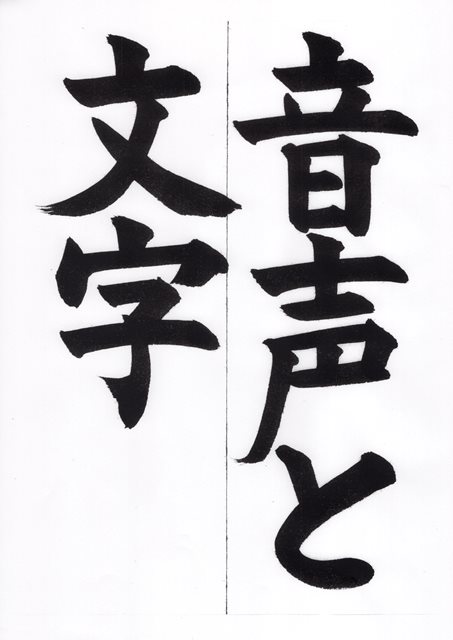 音声と
文字